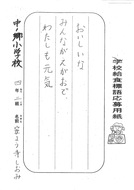 学校給食標語応募用紙
おいしいな
みんながえがおで、
わたしも元気
中ノ郷小学校
四年 組 名前